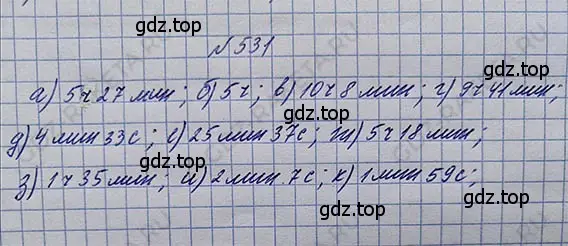 №531
а) 5ч 27 мин; б) 5ч; в) 10ч 8 мин; г) 9ч 41 мин;
д) 4 мин 33с; е) 25 мин 37с; ж) 5ч 18 мин;
з) 1ч 35 мин; и) 2 мин 7с; к) 1 мин 59с;
gdz.top
gdz.top
gdz.top
gdz.top
gdz.top
gdz.top
gdz.top
gdz.top